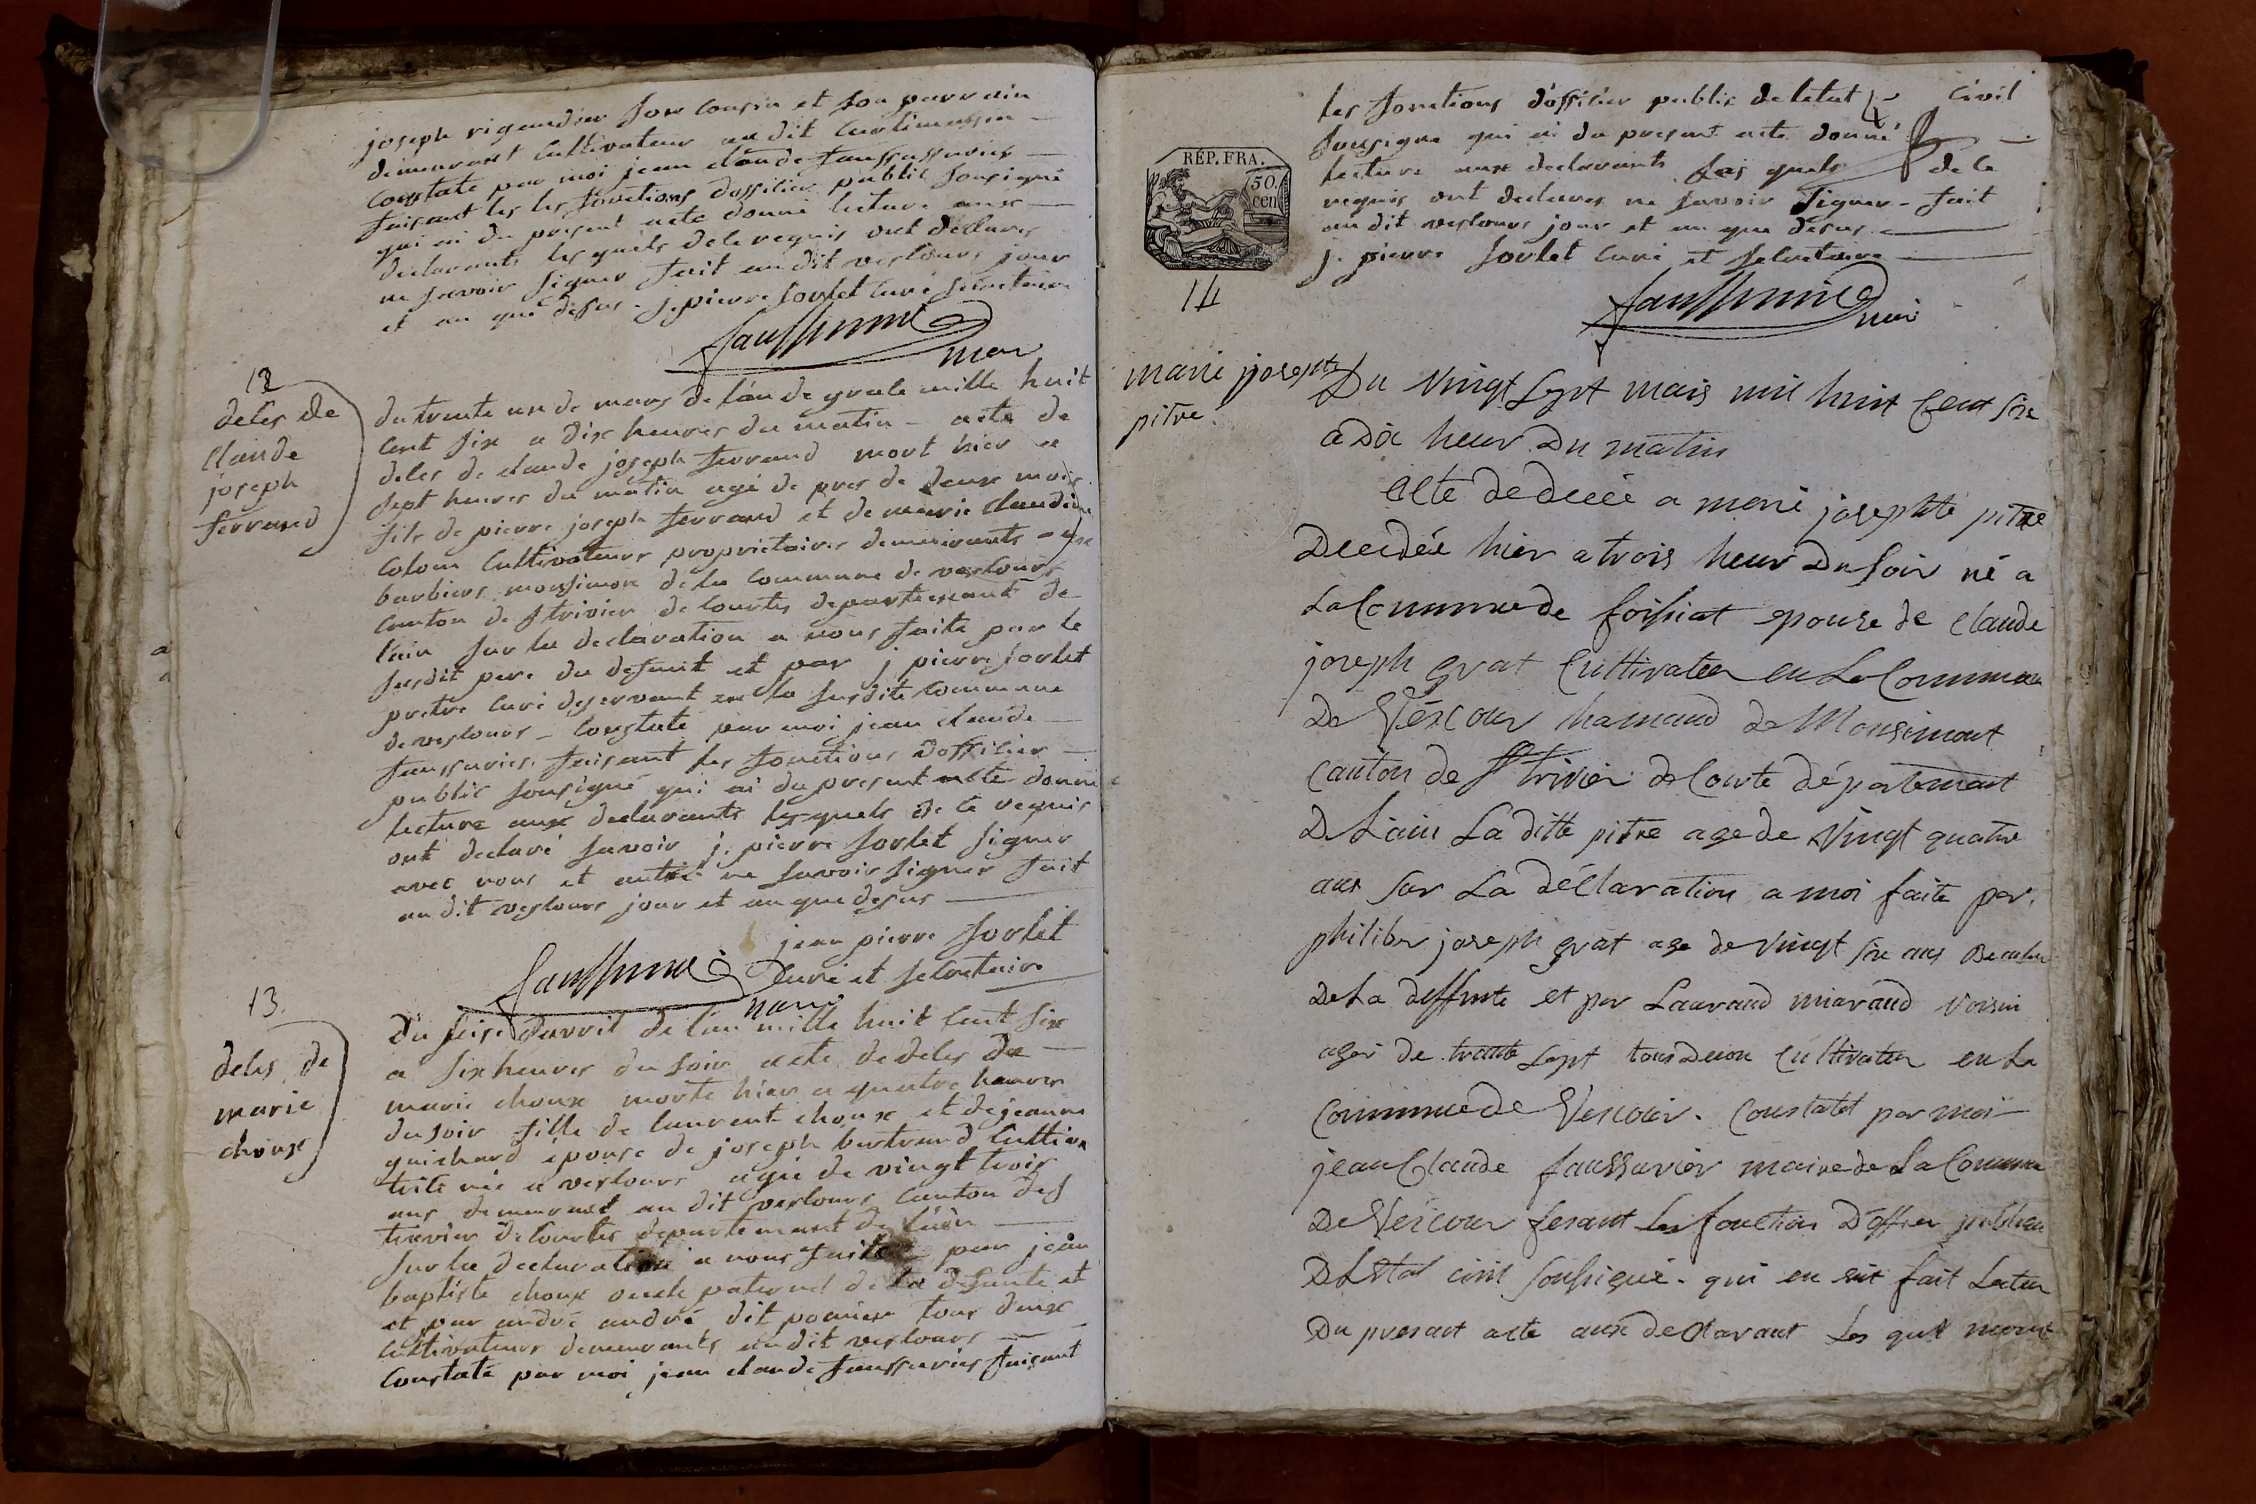 joseph rigaudier son cousin et son parrain
demeurant cultivateur au dit
constaté par moi jean claude faussurier
faisant les les fonctions dossilier public sousigné
qui ai du present acte donné lecture aux
declarants les quels de le requis ont déclarés
ne savoir signer fait au dit vescours jour
et an que desus - j. pierre sorlet curé secretaire
faussurier
mar
12
deces de
claude
joseph
ferrand
du trente un de mars de l'an de grace mille huit
cent six a dix heures du matin - acte de
deces de claude joseph ferrand mort hier a
sept heures du matin agé de pres de deux mois
fils de pierre joseph ferrand et de marie claudine
colom cultivateurs proprietaires demeurants
monsimon de la commune de vescours
canton de st trivier de courtes departement de
l'ain sur la declaration a nous faite par le
susdit pere du defunt et par j pierre sorlet
pretre curé deservant en la susdite commune
de vescours - constaté par moi jean claude
faussurier faisant les fonctions dossilier
public sousigné qui ai du present acte donné
lecture aux declarants les quels de le requis
ont declaré savoir j. pierre sorlet signer
avec nous et autre ne savoir signer fait
au dit vescours jour et an que desus
jean pierre sorlet
faussurier curé et secretaire
mar
13.
deces de
marie
choux
du seise d'avril de l'an mille huit cent six
a six heures du soir acte de deces de
marie choux morte hier a quatre heures
du soir fille de laurent choux et de jeanne
guichard épouse de joseph bertrand cultiva
née a vescours agée de vingt trois
ans demeurant au dit vescours canton de s
trivier de courtes departement de l'ain
sur la declaration a nous faite par jean
baptiste choux oncle paternel de la defunte et
et par andré andré dit tous deux
cultivateurs demeurants au dit vescours
constaté par moi jean claude faussurier faisant
les fonctions dossilier public de letat civil
sousigné qui ai du present acte donné
lecture aux declarants les quels de le
requis ont declarés ne savoir signer - fait
au dit vescours jour et an que desus.
j. pierre sorlet curé et secretaire
faussurier
mar
RÉP. FRA.
50.
cen
14
marie josephte
pitre.
Du vingt sept mais mil huit cent six
a dix heur du matin
acte de decée a marie josephte pitre
decedée hier a trois heur du soir né a
la commune de foissiat epouse de claude
joseph grat cultivateur en la commune
de Véscour hamaud de Monsimont
canton de st trivier de courte département
de l'ain la ditte pitre age de vingt quatre
ans sur la déclaration a moi faite par
philiber joseph grat age de vingt six ans
de la deffunte et par Lauraud miaraud voisin
ager de trante sept tous deux cultivateur en la
commune de Vescour. constatet par moi
jean Claude faussurier maire de la commune
de Véscour fesant les fonction d'offier
de l'etat civil soussigné. qui en
du presant acte aux declarant les quel